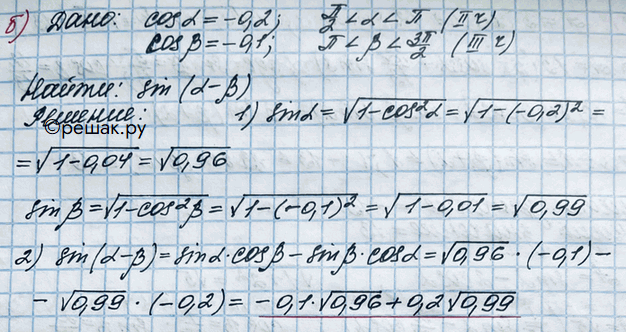 б) Дано: cosα = -0,2; π/2 < α < π (II ч)
cosβ = -0,1; π < β < 3π/2 (III ч)
Найти: sin (α-β)
Решение: 1) sinα = √(1-cos²α) = √(1-(-0,2)²) =
©решак.ру
= √(1-0,04) = √0,96
sinβ = √(1-cos²β) = √(1-(-0,1)²) = √(1-0,01) = √0,99
2) sin(α-β) = sinα·cosβ - sinβ·cosα = √0,96 · (-0,1) -
- √0,99 · (-0,2) = -0,1·√0,96 + 0,2√0,99